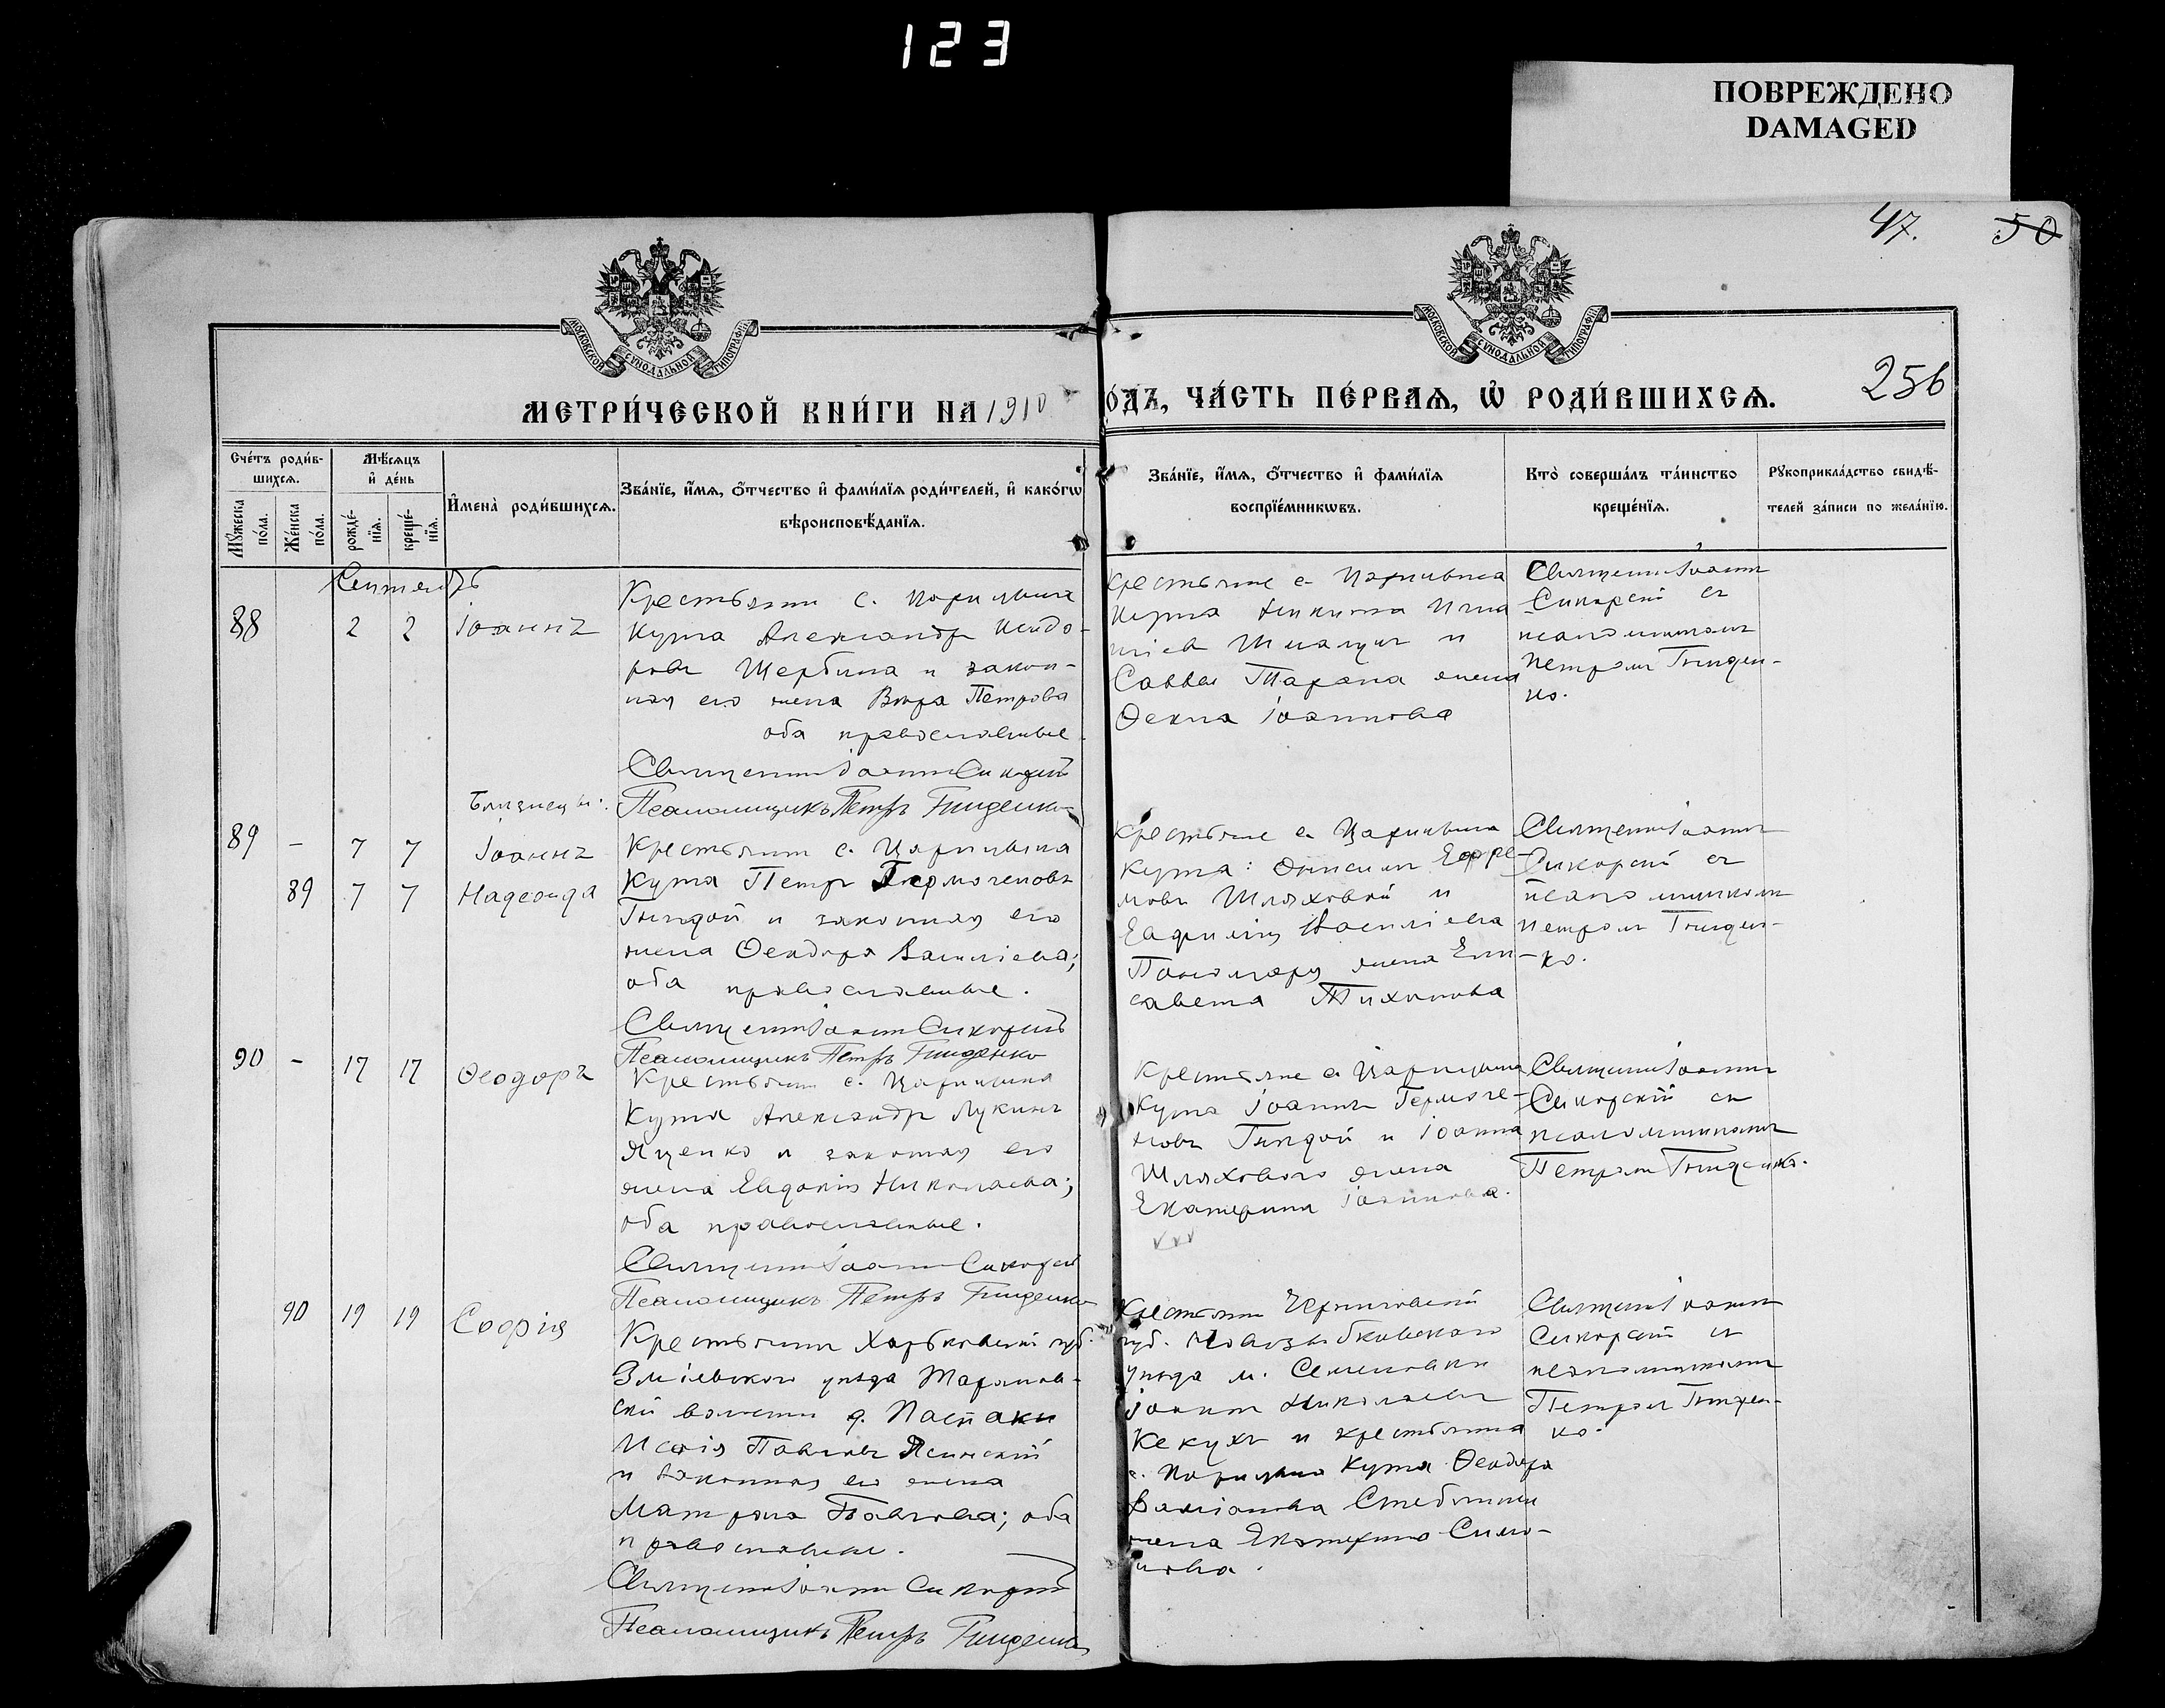 123
ПОВРЕЖДЕНО
DAMAGED
47. 50
МОСКОВСКОЙ СѴНОДАЛЬНОЙ ТИПОГРАФІИ
МОСКОВСКОЙ СѴНОДАЛЬНОЙ ТИПОГРАФІИ
256
МЕТРИ́ЧЕСКОЙ КНИ́ГИ НА 1910
О́ДЪ, ЧА́СТЬ ПЕ́РВАѦ, Ѡ҆ РОДИ́ВШИХСѦ.
Сче́тъ роди́в-
шихсѧ.
Мꙋ́жеска по́ла.
Же́нска по́ла.
Мѣ́сѧцъ
и҆ де́нь
рожде́-
нїѧ.
креще́-
нїѧ.
И҆мена̀ роди́вшихсѧ.
Зва́нїе, и҆́мѧ, ѻ҆́тчество и҆ фами́лїѧ роди́телей, и҆ како́гѡ
вѣроисповѣ́данїѧ.
Зва́нїе, и҆́мѧ, ѻ҆́тчество и҆ фами́лїѧ
воспрїе́мникѡвъ.
Кто̀ соверша́лъ та́инство
креще́нїѧ.
Рꙋкоприкла́дство свидѣ́-
телей за́писи по жела́нїю.
Сентябрь
88 2 2 Іоаннъ
Крестьянинъ с. Царицына
Кута Александръ Исидо-
ровъ Щербина и закон-
ная его жена Вѣра Петрова
оба православные.
Священникъ Іоаннъ Сикорскій
Псаломщикъ Петръ Гниденко
Крестьяне с. Царицына
Кута Никита
и
Саввы Тарана жена
Ѳекла Іоаннова
Священникъ Іоаннъ
Сикорскій съ
псаломщикомъ
Петромъ Гниден-
ко.
Близнецы:
89 - 7 7 Іоаннъ
89 7 7 Надежда
Крестьянинъ с. Царицына
Кута Петръ Гермогеновъ
Гнѣдой и законная его
жена Ѳеодора Василіева;
оба православные.
Священникъ Іоаннъ Сикорскій
Псаломщикъ Петръ Гниденко
Крестьяне с. Царицына
Кута: Онисимъ Ефре-
мовъ Шляховой и
Василіева
Пономаря жена Ели-
савета Тихонова
Священникъ Іоаннъ
Сикорскій съ
псаломщикомъ
Петромъ Гниден-
ко.
90 - 17 17 Ѳеодоръ
Крестьянинъ с. Царицына
Кута Александръ Лукинъ
Яценко и законная его
жена Евдокія Николаева;
оба православные.
Священникъ Іоаннъ Сикорскій
Псаломщикъ Петръ Гниденко
Крестьяне с. Царицына
Кута Іоаннъ Гермоге-
новъ Гнѣдой и Іоанна
Шляхового жена
Екатерина Іоаннова.
Священникъ Іоаннъ
Сикорскій съ
псаломщикомъ
Петромъ Гниденко.
90 19 19 Софія
Крестьянинъ Харьковской губ.
Зміевского уѣзда Тарановс-
кой волости д. Паспаки
Исаія Павловъ Ясинскій
и законная его жена
Матрона Павлова; оба
православные.
Священникъ Іоаннъ Сикорскій
Псаломщикъ Петръ Гниденко
Крестьянинъ Черниговской
губ. Новозыбковского
уѣзда м. Семеновки
Іоаннъ Николаевъ
Кекухъ и крестьянина
с. Царицына Кута Ѳеодора
Стеблины
жена Екатерина Симо-
нова.
Священникъ Іоаннъ
Сикорскій съ
псаломщикомъ
Петромъ Гниден-
ко.